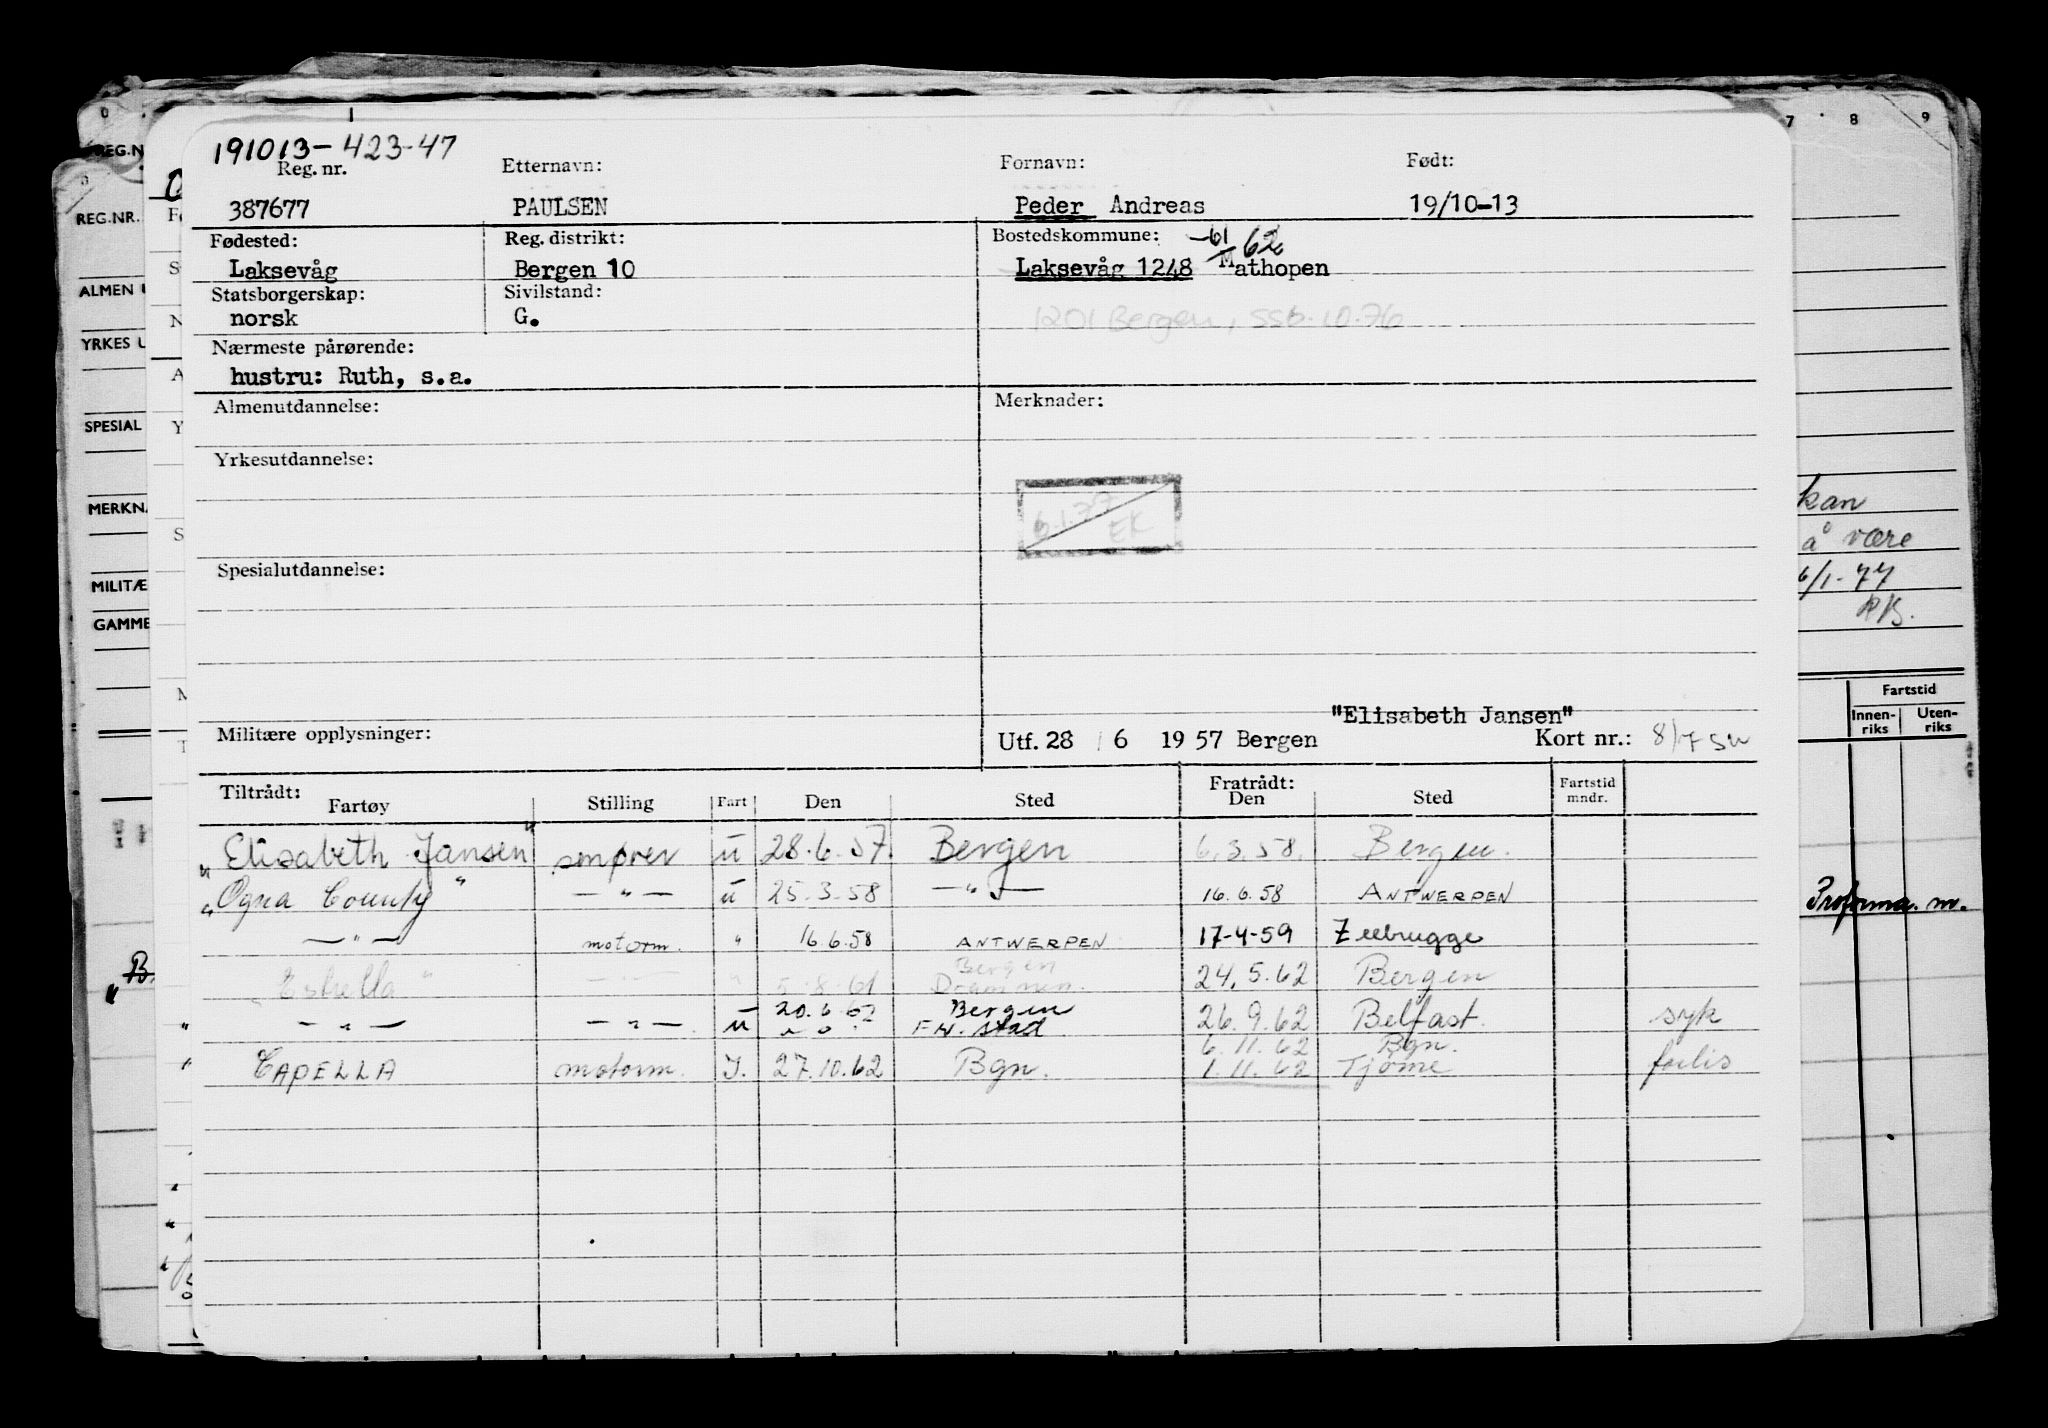 191013-423-47
Reg. nr. Etternavn: Fornavn: Født:
387677 PAULSEN Peder Andreas 19/10-13
Fødested: Reg. distrikt: Bostedskommune: -61 62
Laksevåg Bergen 10 Laksevåg 1248 Mathopen
Statsborgerskap: Sivilstand:
norsk G. 1201 Bergen, SSb. 10.76
Nærmeste pårørende:
hustru: Ruth, s.a.
Almenutdannelse: Merknader:
Yrkesutdannelse:
6.1.77
EK
Spesialutdannelse:
"Elisabeth Jansen"
Militære opplysninger: Utf. 28/6 1957 Bergen Kort nr.: 8/7 SW
Tiltrådt: Fratrådt: Fartstid
Fartøy Stilling Fart Den Sted Den Sted mndr.
"Elisabeth Jansen" smører u 28.6.57. Bergen 6.3.58. Bergen.
"Ogna County" —"— u 25.3.58 —"— 16.6.58 ANTWERPEN
—"— motorm. " 16.6.58 ANTWERPEN 17-4-59 Zeebrugge
Bergen
"Estrella" —"— " 5.8.61 Drammen. 24.5.62 Bergen
20.6.62 Bergen
—"— —"— u " " " Fr.stad 26.9.62 Belfast. syk
6.11.62 Bgn.
CAPELLA motorm. I. 27.10.62 Bgn. 1.11.62 Tjøme forlis
REG.NR.
ALMEN
YRKES
SPESIAL
MERKNA
MILITÆ
GAMME
7 8 9
kan
å være
6/1-77
Fartstid
Innen-riks Uten-riks
Proforma. m.